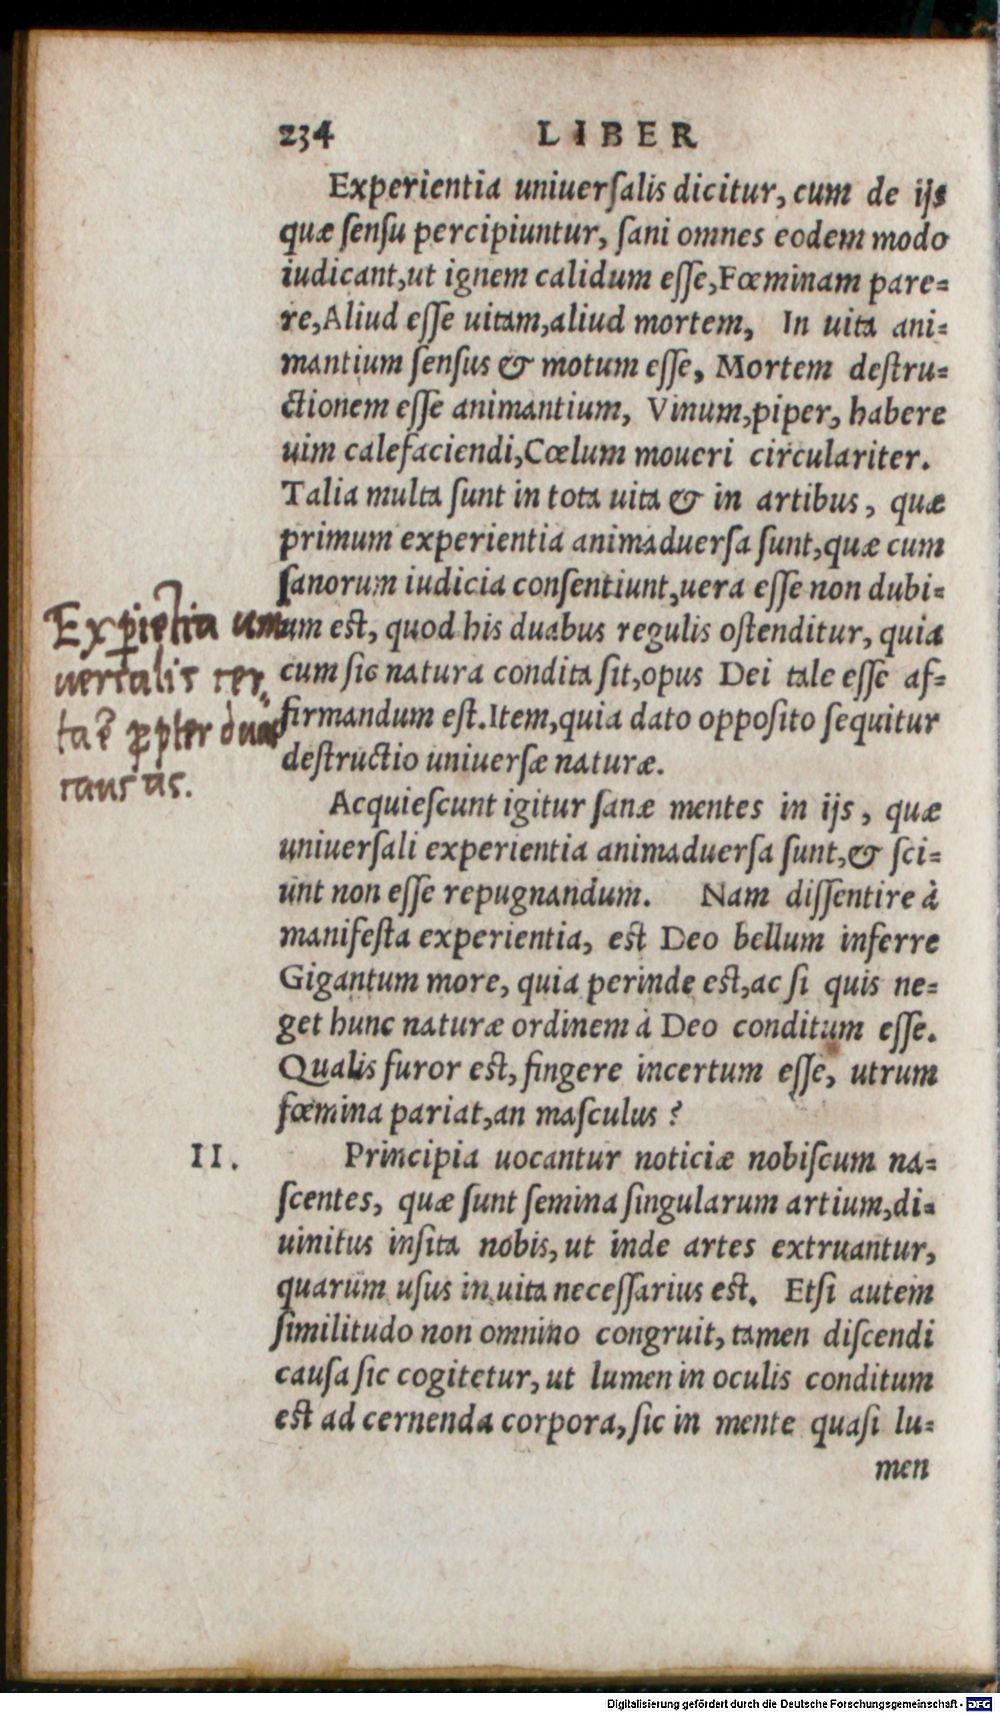 234 LIBER
Experientia uniuerſalis dicitur, cum de ijs
quæ ſenſu percipiuntur, ſani omnes eodem modo
iudicant,ut ignem calidum eſſe,Fœminam pare=
re,Aliud eſſe uitam,aliud mortem, In uita ani=
mantium ſenſus & motum eſſe, Mortem deſtru=
ctionem eſſe animantium, Vinum,piper, habere
uim calefaciendi,Cœlum moueri circulariter.
Talia multa ſunt in tota uita & in artibus, quæ
primum experientia animaduerſa ſunt,quæ cum
ſanorum iudicia conſentiunt,uera eſſe non dubi=
um est, quod his duabus regulis oſtenditur, quia
cum ſic natura condita ſit,opus Dei tale eſſe af=
firmandum est.Item,quia dato oppoſito ſequitur
deſtructio uniuerſæ naturæ.
Expiẽtia uni
uerſalis cer
ta ẽ ꝓpter duas
cauſas.
Acquieſcunt igitur ſanæ mentes in ijs, quæ
uniuerſali experientia animaduerſa ſunt,& ſci=
unt non eſſe repugnandum. Nam diſſentire à
manifeſta experientia, est Deo bellum inferre
Gigantum more, quia perinde est,ac ſi quis ne=
get hunc naturæ ordinem à Deo conditum eſſe.
Qualis furor est, fingere incertum eſſe, utrum
fœmina pariat,an maſculus?
II. Principia uocantur noticiæ nobiſcum na=
ſcentes, quæ ſunt ſemina ſingularum artium,di=
uinitus inſita nobis, ut inde artes extruantur,
quarum uſus in uita neceſſarius est. Etſi autem
ſimilitudo non omnino congruit, tamen diſcendi
cauſa ſic cogitetur, ut lumen in oculis conditum
est ad cernenda corpora, ſic in mente quaſi lu=
men
Digitalisierung gefördert durch die Deutsche Forschungsgemeinschaft - DFG